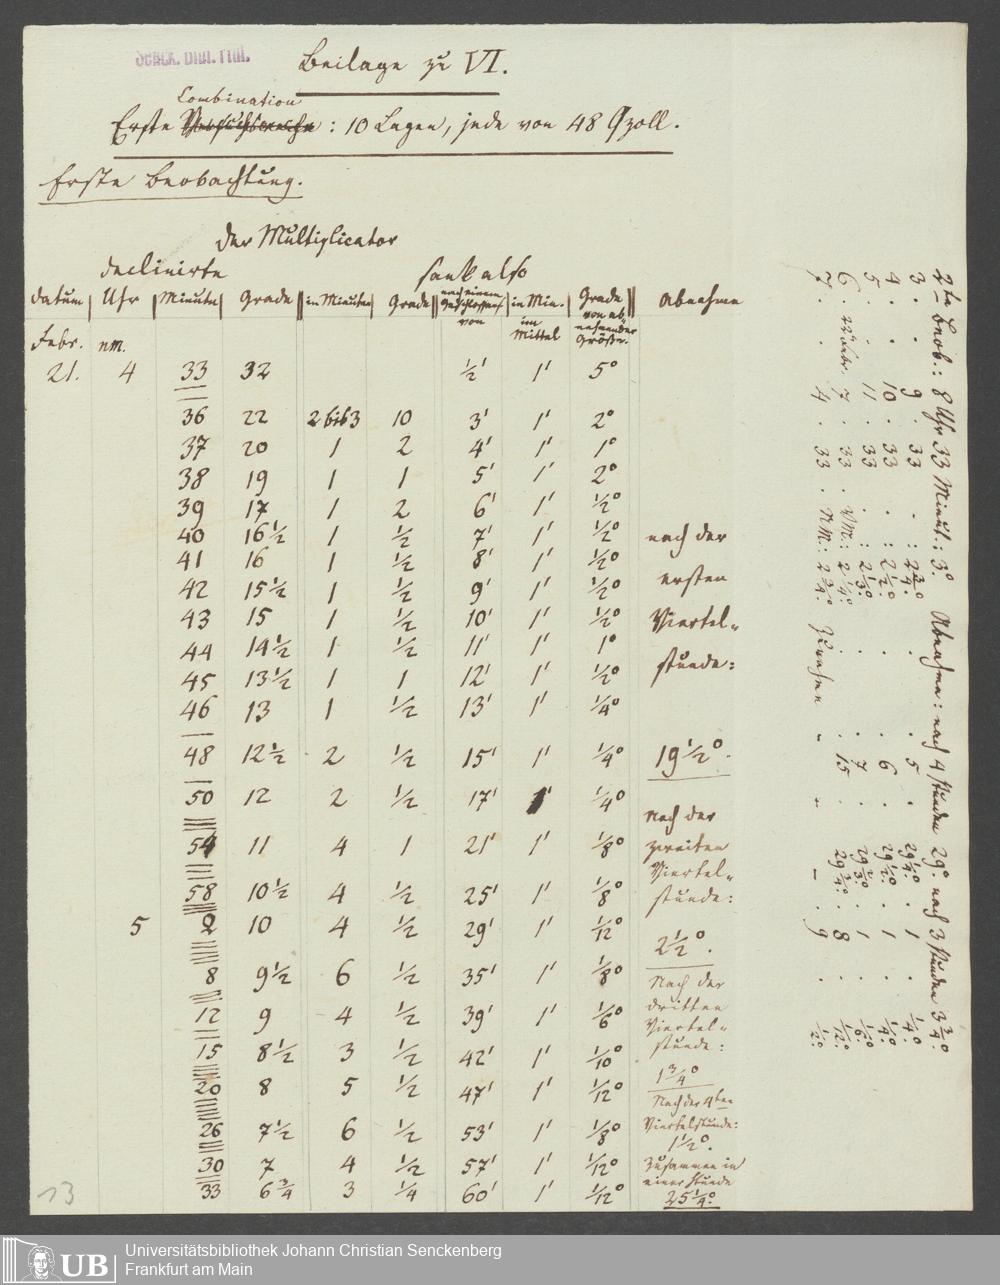 Senck. Bibl. Ffm.
Beilage zu VI.
Combination
Erste Versuchsreihe : 10 Lagen, jede von 48 Qzoll.
Erste Beobachtung.
Der Multiplicator
declinirte sank also
Datum Uhr Minute Grade in Minuten Grade nach einem von in Min. im Mittel Grade von abnehmender Größe. Abnahme
Febr. nm.
21. 4 33 32 ½' 1' 5°
36 22 2 bis 3 10 3' 1' 2°
37 20 1 2 4' 1' 1°
38 19 1 1 5' 1' 2°
39 17 1 2 6' 1' ½°
40 16½ 1 ½ 7' 1' ½° nach der
41 16 1 ½ 8' 1' ½° ersten
42 15½ 1 ½ 9' 1' ½°
43 15 1 ½ 10' 1' ½° Viertel-
44 14½ 1 ½ 11' 1' 1° stunde:
45 13½ 1 1 12' 1' ½°
46 13 1 ½ 13' 1' ¼°
48 12½ 2 ½ 15' 1' ¼° 19½°.
50 12 2 ½ 17' 1' ¼° nach der
54 11 4 1 21' 1' ⅛° zweiten
Viertel-
58 10½ 4 ½ 25' 1' ⅛ stunde:
5 2 10 4 ½ 29' 1' 1/12° 2½°.
8 9½ 6 ½ 35' 1' ⅛° Nach der
dritten
12 9 4 ½ 39' 1' 1/6° Viertel-
stunde:
15 8½ 3 ½ 42' 1' 1/10°
1¾°
20 8 5 ½ 47' 1' 1/12° Nach der 4ten
Viertelstunde:
26 7½ 6 ½ 53' 1' ⅛° 1½°.
30 7 4 ½ 57' 1' 1/12° Zusammen in
einer Stunde
33 6¾ 3 ¼ 60' 1' 1/12° 25¼°.
13
2te Beob.: 8 Uhr 33 Minut.: 3°. Abnahme: nach 4 Stunden 29°. nach 3 Stunden 3¾°.
3. . 9 . 33 . : 2¾°. . . 5 . 29¼°. . 1 . ¼°.
4. . 10 . 33 . : 2½°. . . 6 . 29½°. . 1 . ¼°.
5 . 11 . 33 . : 2⅓°. . . 7 . 29⅔°. . 1 . 1/6°.
6 . 22 Febr. 7 . 33 . VM.: 2¼°. . . 15 . 29¾°. . 8 . 1/12°.
7 . . 4 . 33 . NM.: 2¾°. Zunahme " " – . 9 . ½°.
Universitätsbibliothek Johann Christian Senckenberg
UB Frankfurt am Main